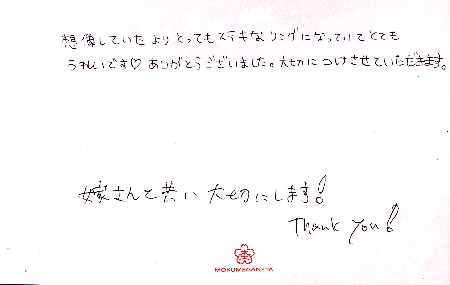 想像していたよりとってもステキなリングになっていてとても
うれしいです♡ありがとうございました。大切につけさせていただきます。
嫁さんと共に大切にします!
Thank you!
杢
MOKUMEGANEYA